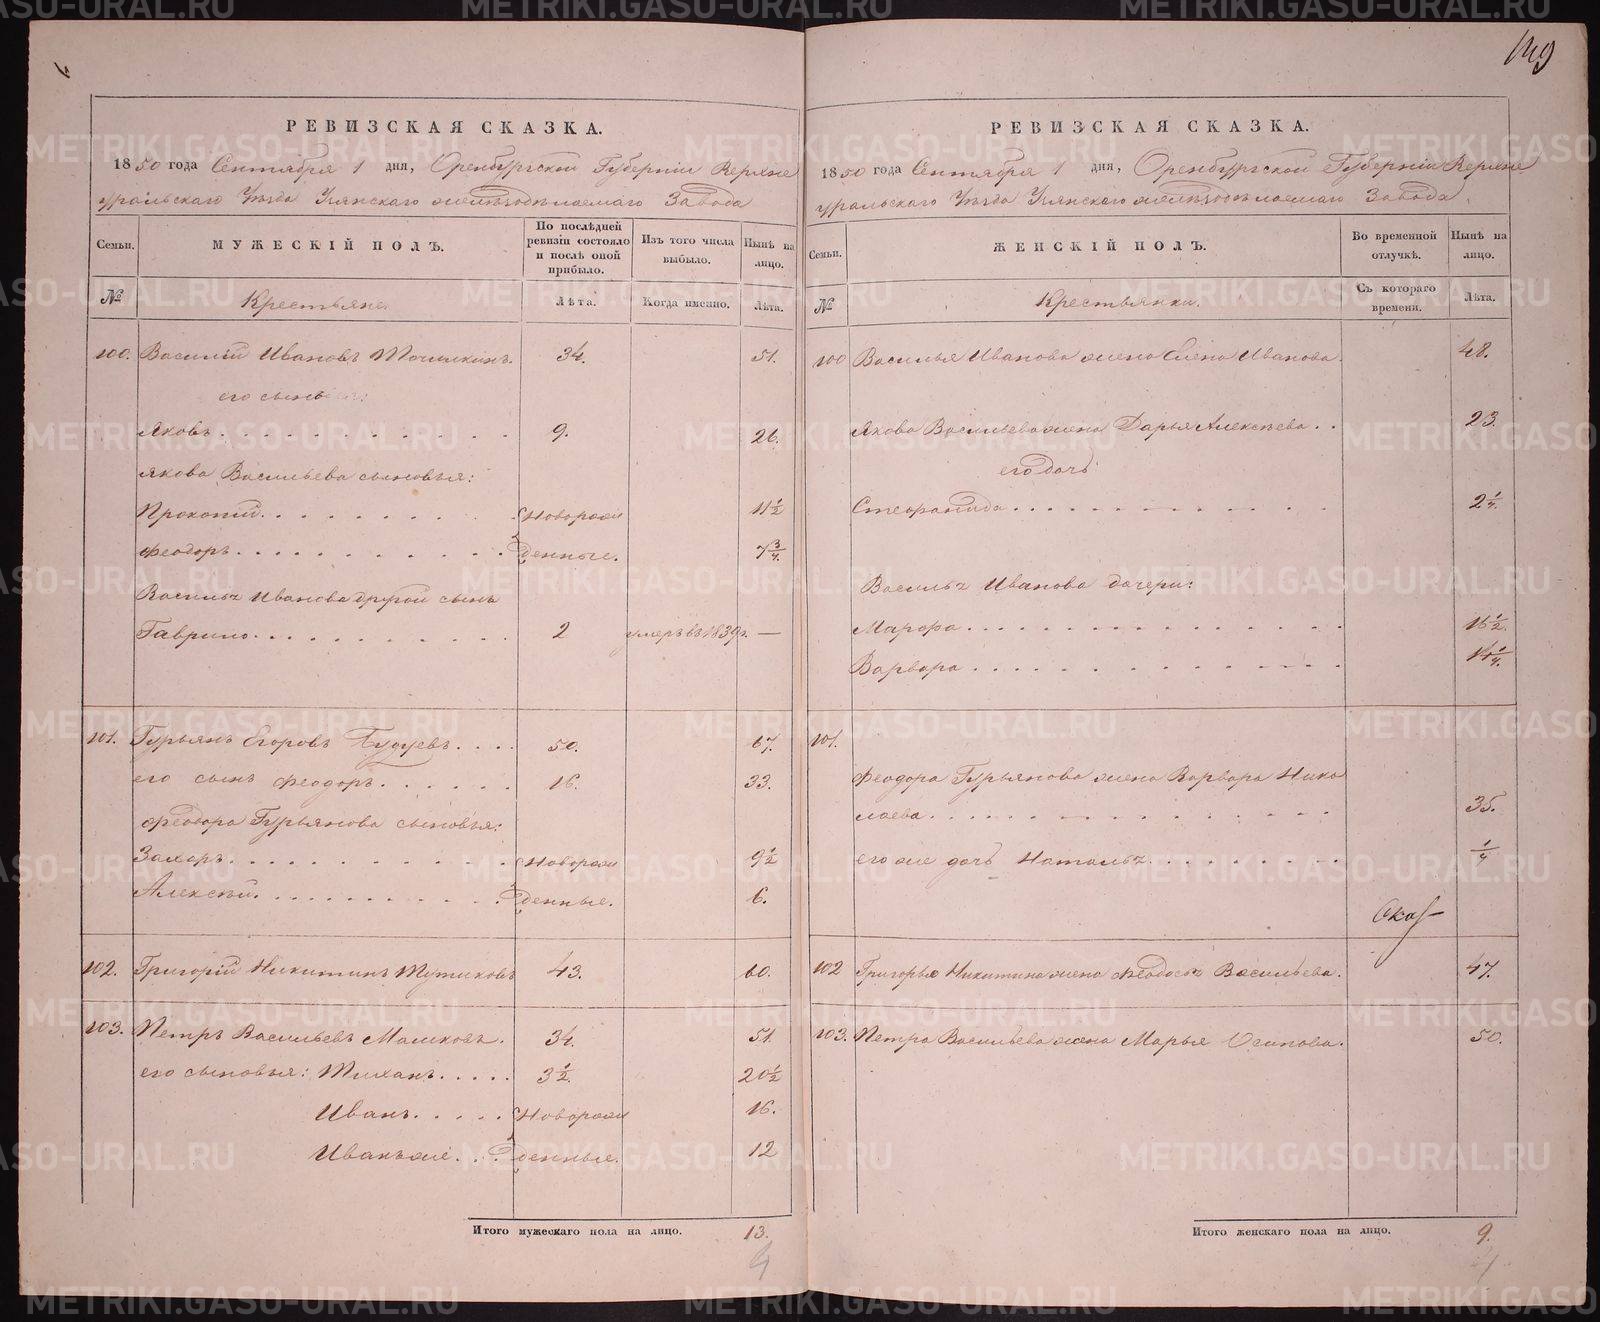 149
РЕВИЗСКАЯ СКАЗКА.
1850 года Сентября 1 дня, Оренбургской Губерніи Верхне
уральскаго Уѣзда Узянскаго желѣзодѣлаемаго Завода
Семьи. МУЖЕСКІЙ ПОЛЪ. По послѣдней ревизіи состояло и послѣ оной прибыло. Изъ того числа выбыло. Нынѣ на лицо.
№ Крестьяне. Лѣта. Когда именно. Лѣта.
100. Василій Ивановъ 34. 51.
его сынъ
Яковъ 9. 26.
Якова Васильева сыновья:
Прокопій Новорож 11½
Феодоръ денные. 7¾
Василья Иванова другой сынъ
Гаврило 2 умеръ въ 1839г. —
101. Гурьянъ Егоровъ 50. 67.
его сынъ Феодоръ 16. 33.
Феодора Гурьянова сыновья:
Захаръ Новорож 9½
Алексѣй денные. 6.
102. Григорій Никитинъ 43. 60.
103. Петръ Васильевъ Машковъ. 34. 51.
его сыновья: Тиханъ 3½ 20½
Иванъ Новорож 16.
Иванъ же денные. 12
Итого мужескаго пола на лицо. 13.
РЕВИЗСКАЯ СКАЗКА.
1850 года Сентября 1 дня, Оренбургской Губерніи Верхне
уральскаго Уѣзда Узянскаго желѣзодѣлаемаго Завода.
Семьи. ЖЕНСКІЙ ПОЛЪ. Во временной отлучкѣ. Нынѣ на лицо.
№ Крестьянки. Съ котораго времени. Лѣта.
100 Василья Иванова жена Елена Иванова. 48.
Якова Васильева жена Дарья Алексѣева 23.
его дочь
Стефанида 2¼
Василья Иванова дочери:
Марфа 16½
Варвара 14¼
101.
Феодора Гурьянова жена Варвара Нико
лаева 35.
его же дочь Наталья ¼
Скаҙ
102 Григорья Никитина жена Феодосья Васильева. 47.
103. Петра Васильева жена Марья Осипова. 50.
Итого женскаго пола на лицо. 9.
METRIKI.GASO-URAL.RU